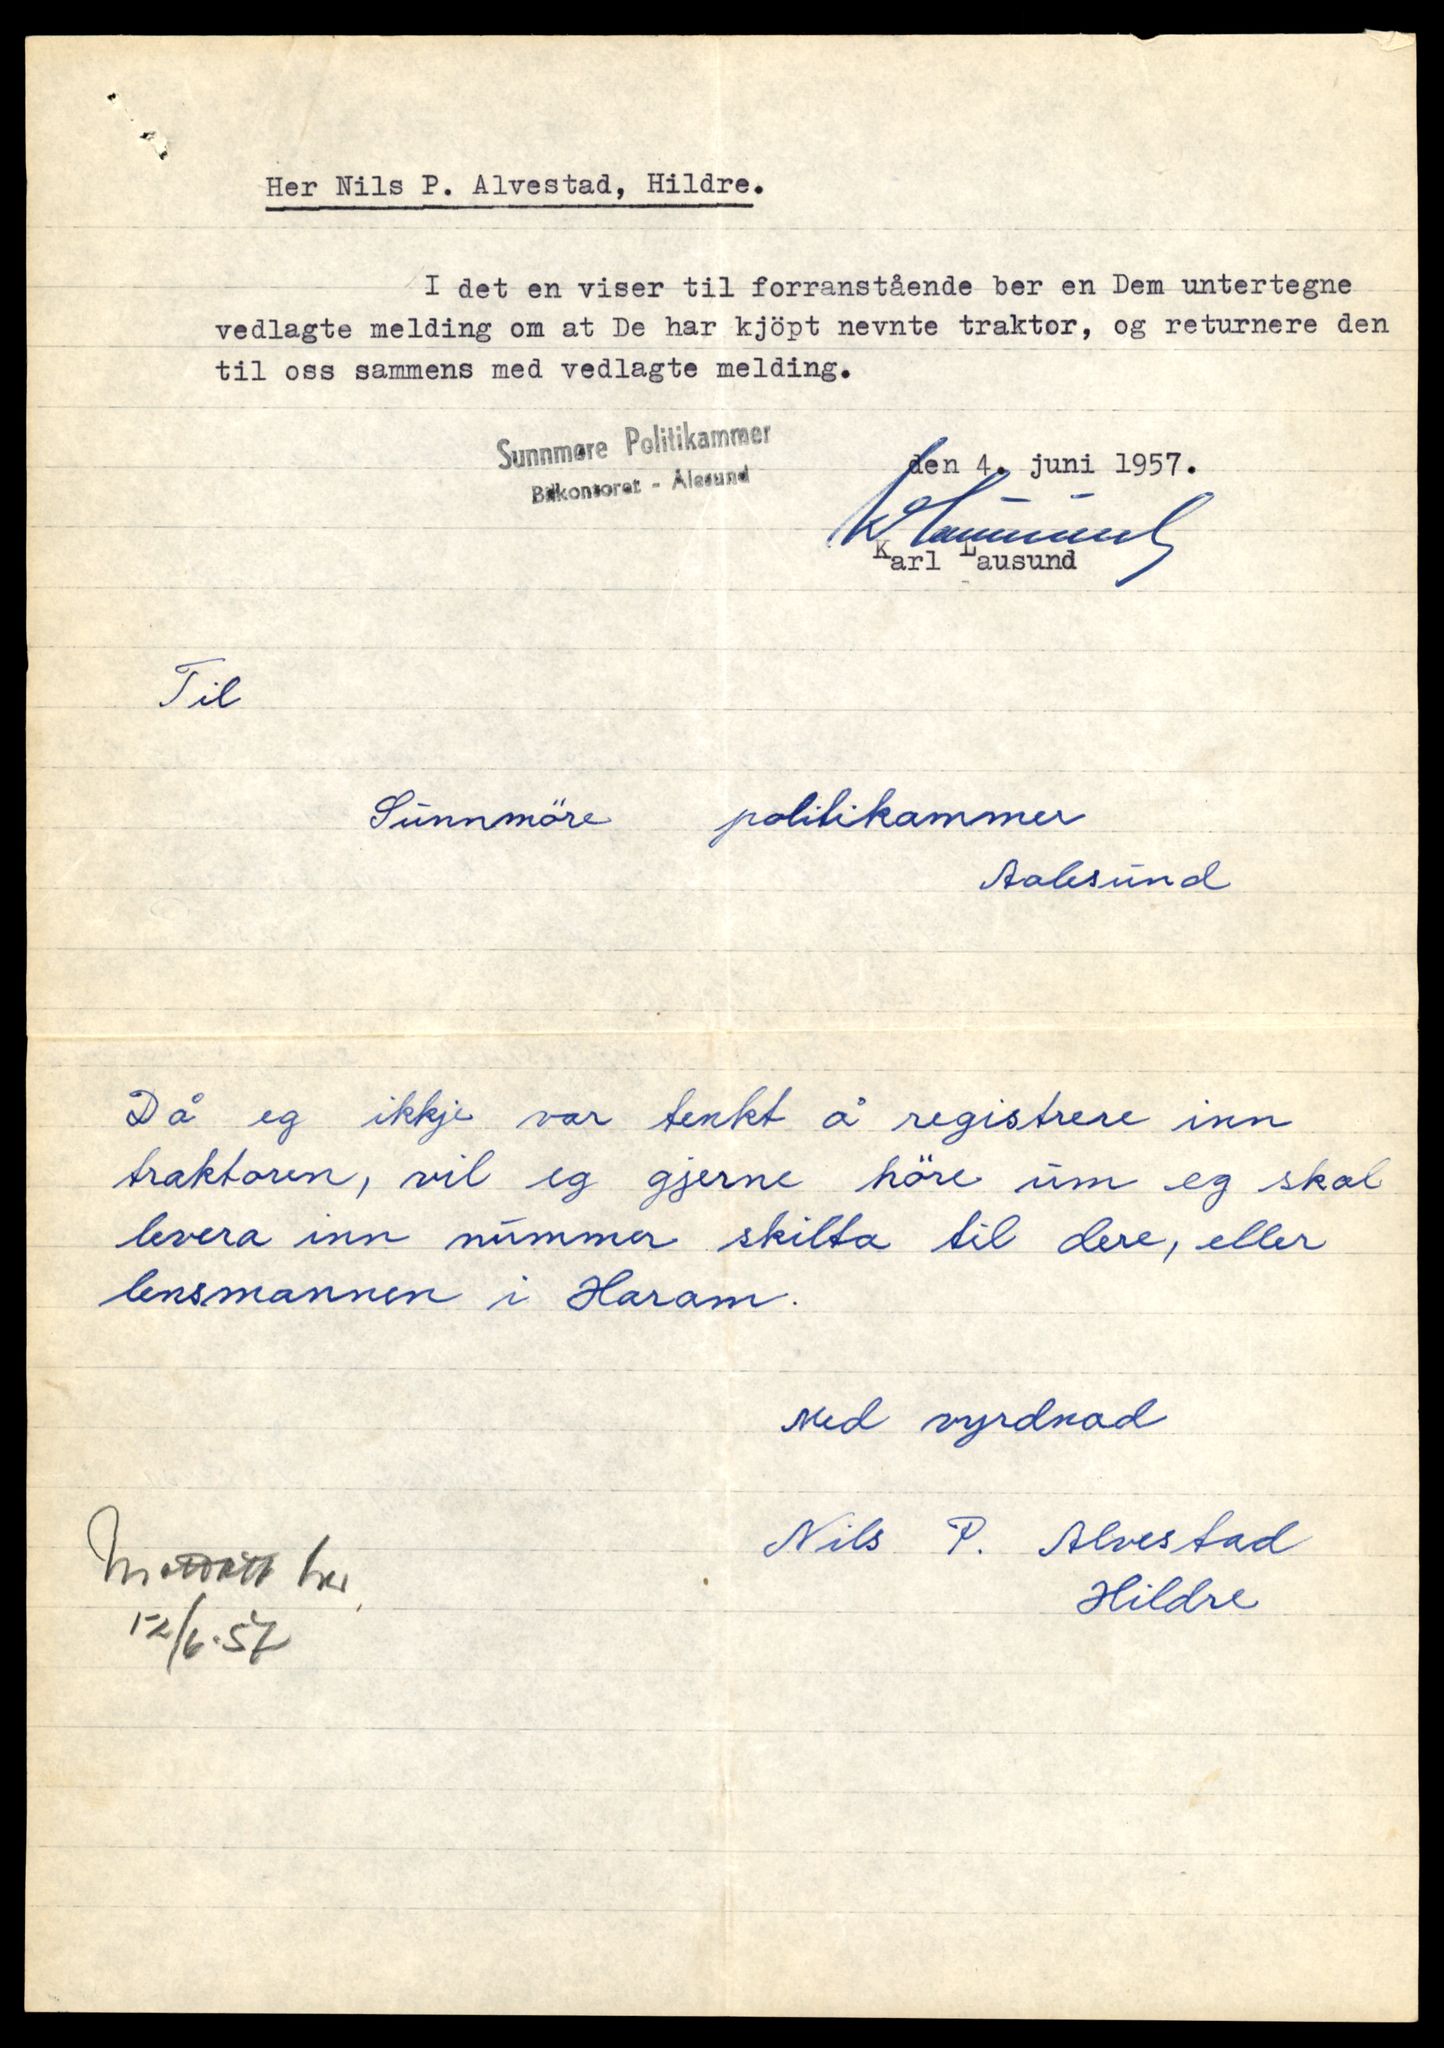 Her Nils P. Alvestad, Hildre.
I det en viser til forranstående ber en Dem untertegne
vedlagte melding om at De har kjöpt nevnte traktor, og returnere den
til oss sammens med vedlagte melding.
Sunnmøre Politikammer
Bilkontoret - Ålesund
den 4. juni 1957.
Karl Lausund
Til
Sunnmöre politikammer
Aalesund
Då eg ikkje var tenkt å registrere inn
traktoren, vil eg gjerne höre um eg skal
levera inn nummer skilta til dere, eller
lensmannen i Haram.
Med vyrdnad
Nils P. Alvestad
Hildre
Mottatt her
12/6.57